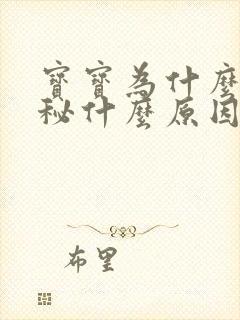 寶寶為什麼
秘什麼原因
布里